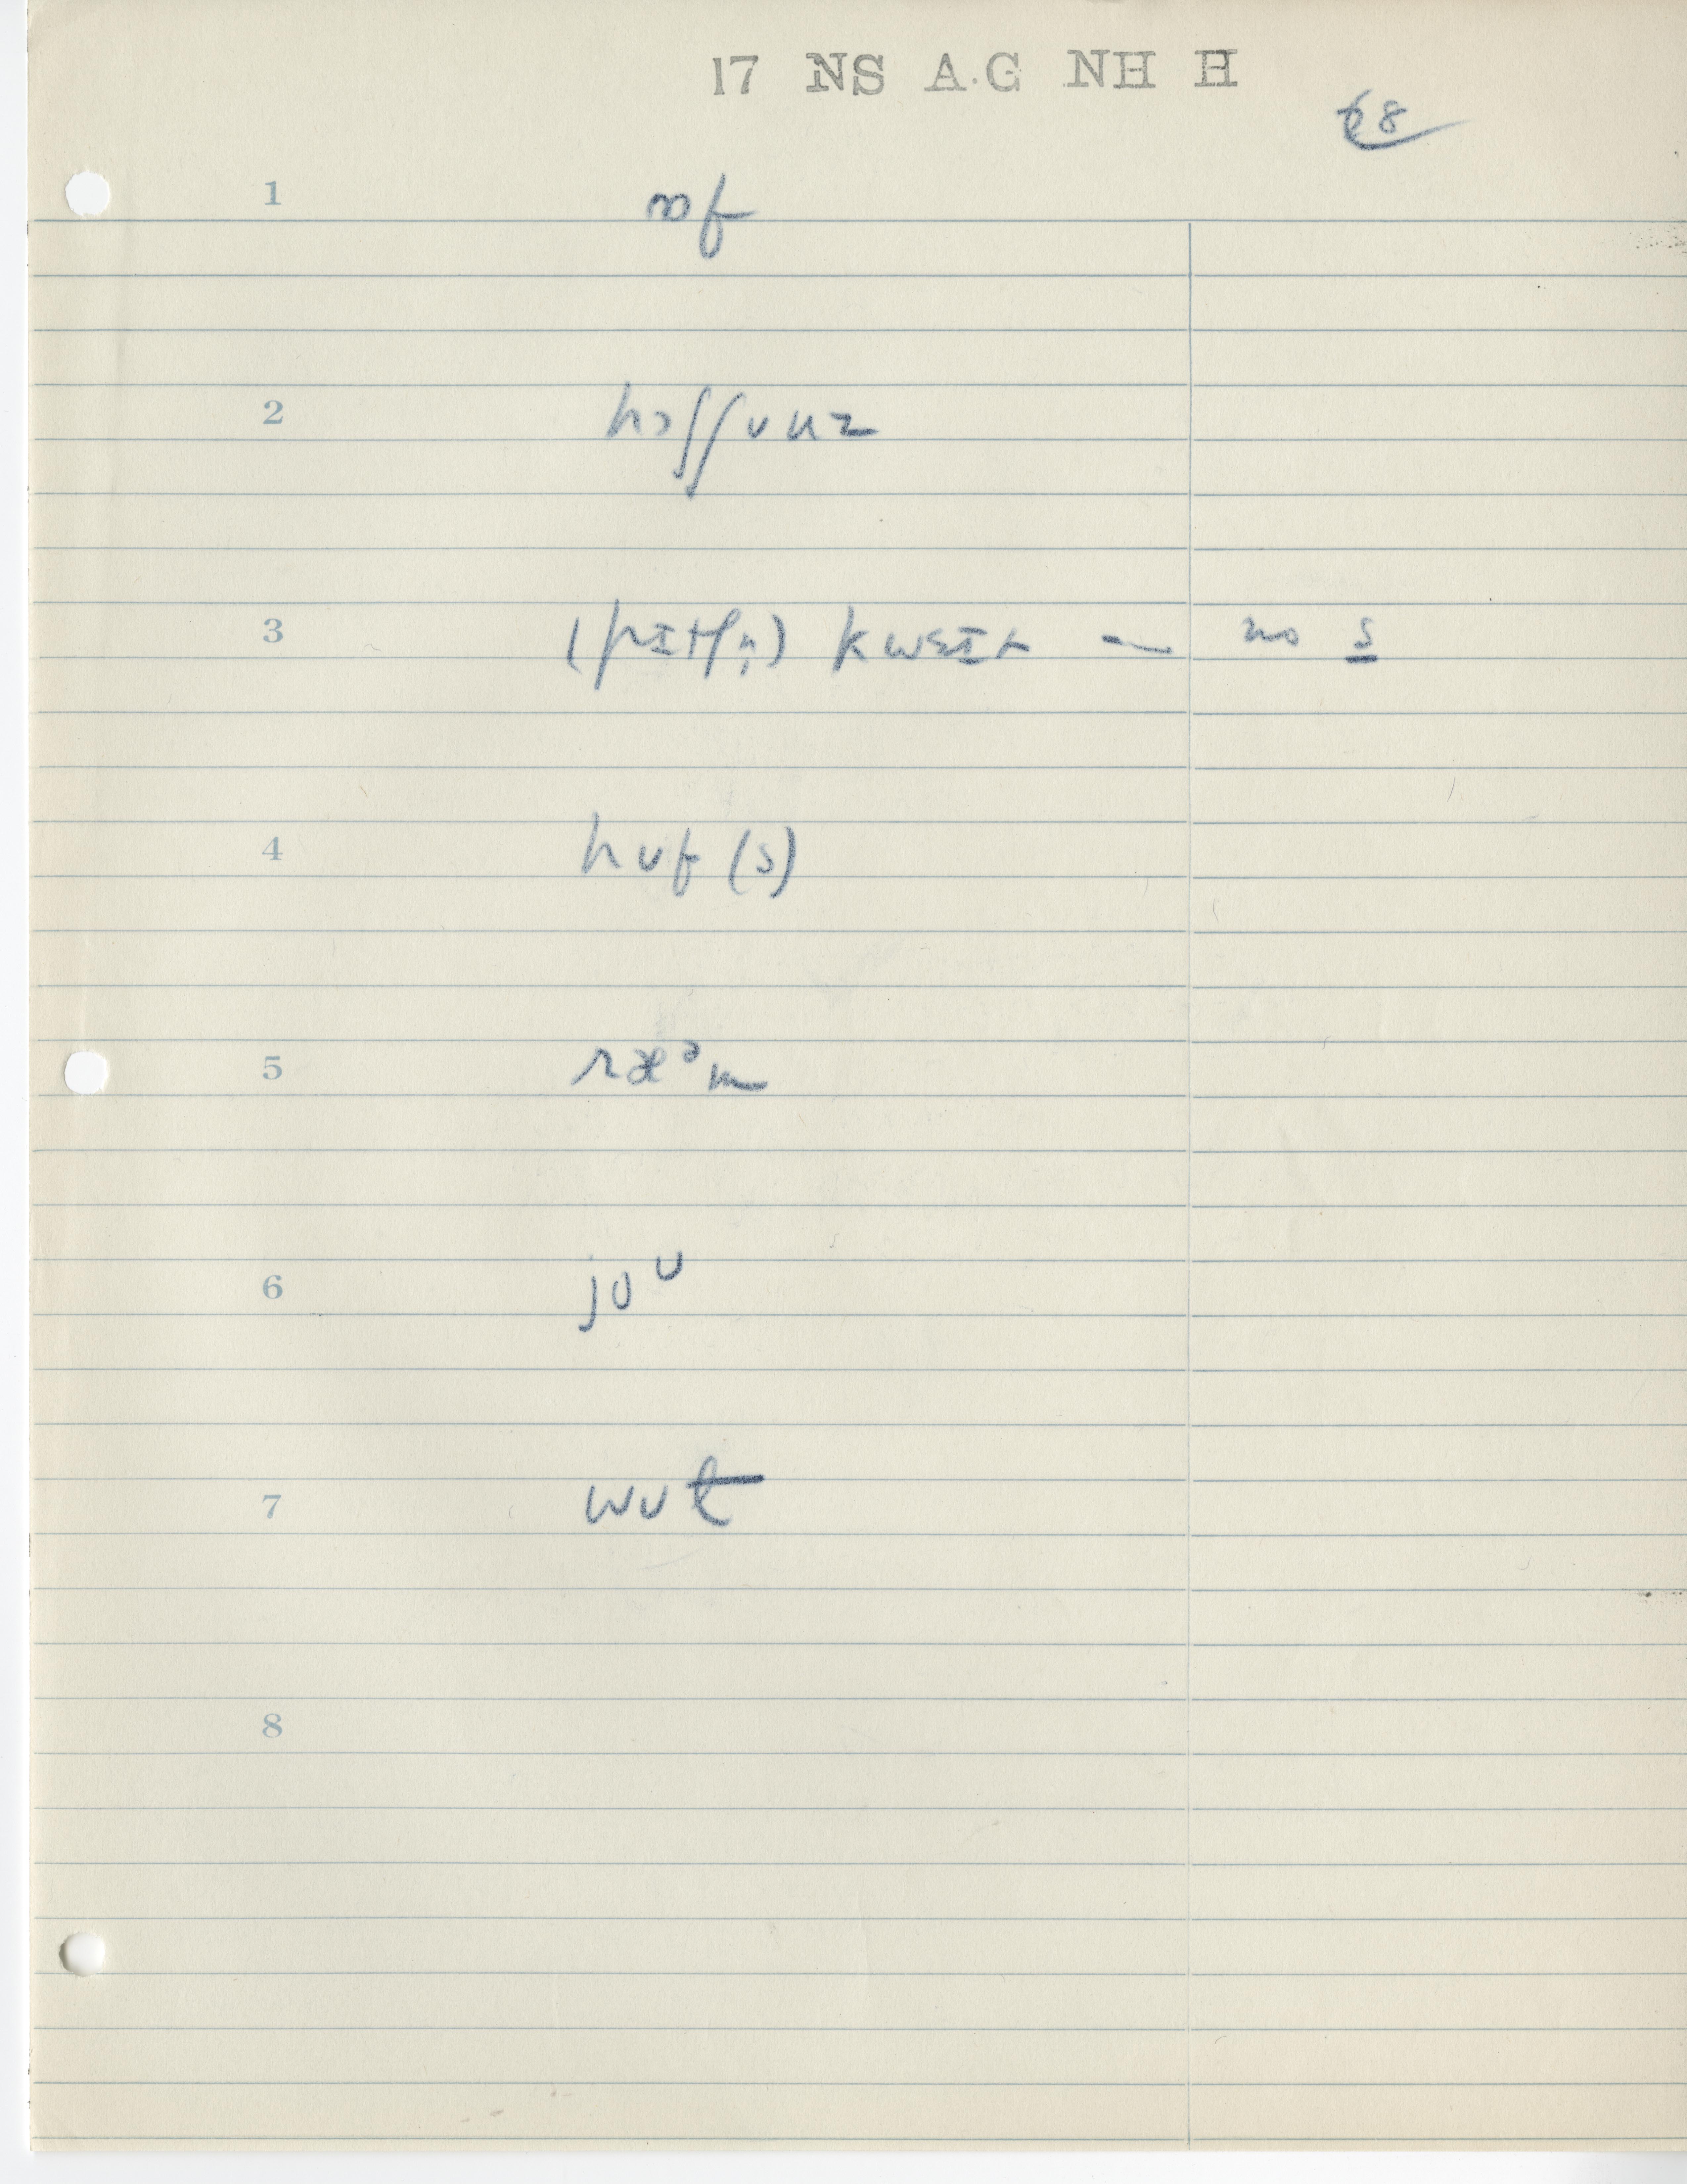 17 NS A.G NH H
1
2 hɔʃʃunz
3 (pɪtʃn̩) kwɛɪt — no s
4 huf (s)
5 ræᵊm
6 joᵁ
7 wut
8